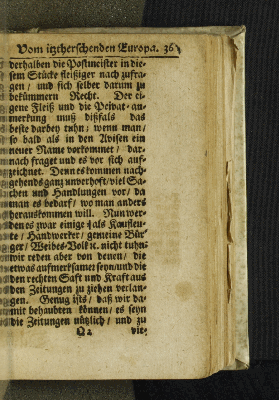 Vom itzherꝛschenden Europa. 36
derhalben die Postmeister in die-
sem Stücke fleißiger nach zufra-
gen / und sich selber darum zu
bekümmern Recht. Der ei-
gene Fleiß und die Privat-an-
merkung muß dißfals das
beste darbey tuhn; wenn man /
so bald als in den Avisen ein
neuer Name vorkommet / dar-
nach fraget und es vor sich auf-
zeichnet. Denn es kommen nach-
gehends ganz unverhoft / viel Sa-
chen und Handlungen vor / da
man es bedarf / wo man anders
herauskommen will. Nun wer-
den es zwar einige als Kaufleu-
te / Handwerker / gemeine Bür-
ger / Weibes-Volk ꝛc. nicht tuhn:
wir reden aber von denen / die
etwas aufmerksamer seyn / und die
den rechten Saft und Kraft aus
den Zeitungen zu ziehen verlan-
gen. Genug ists / daß wir da-
mit behaubten können / es seyn
die Zeitungen nützlich / und zu
Q 2 vie-